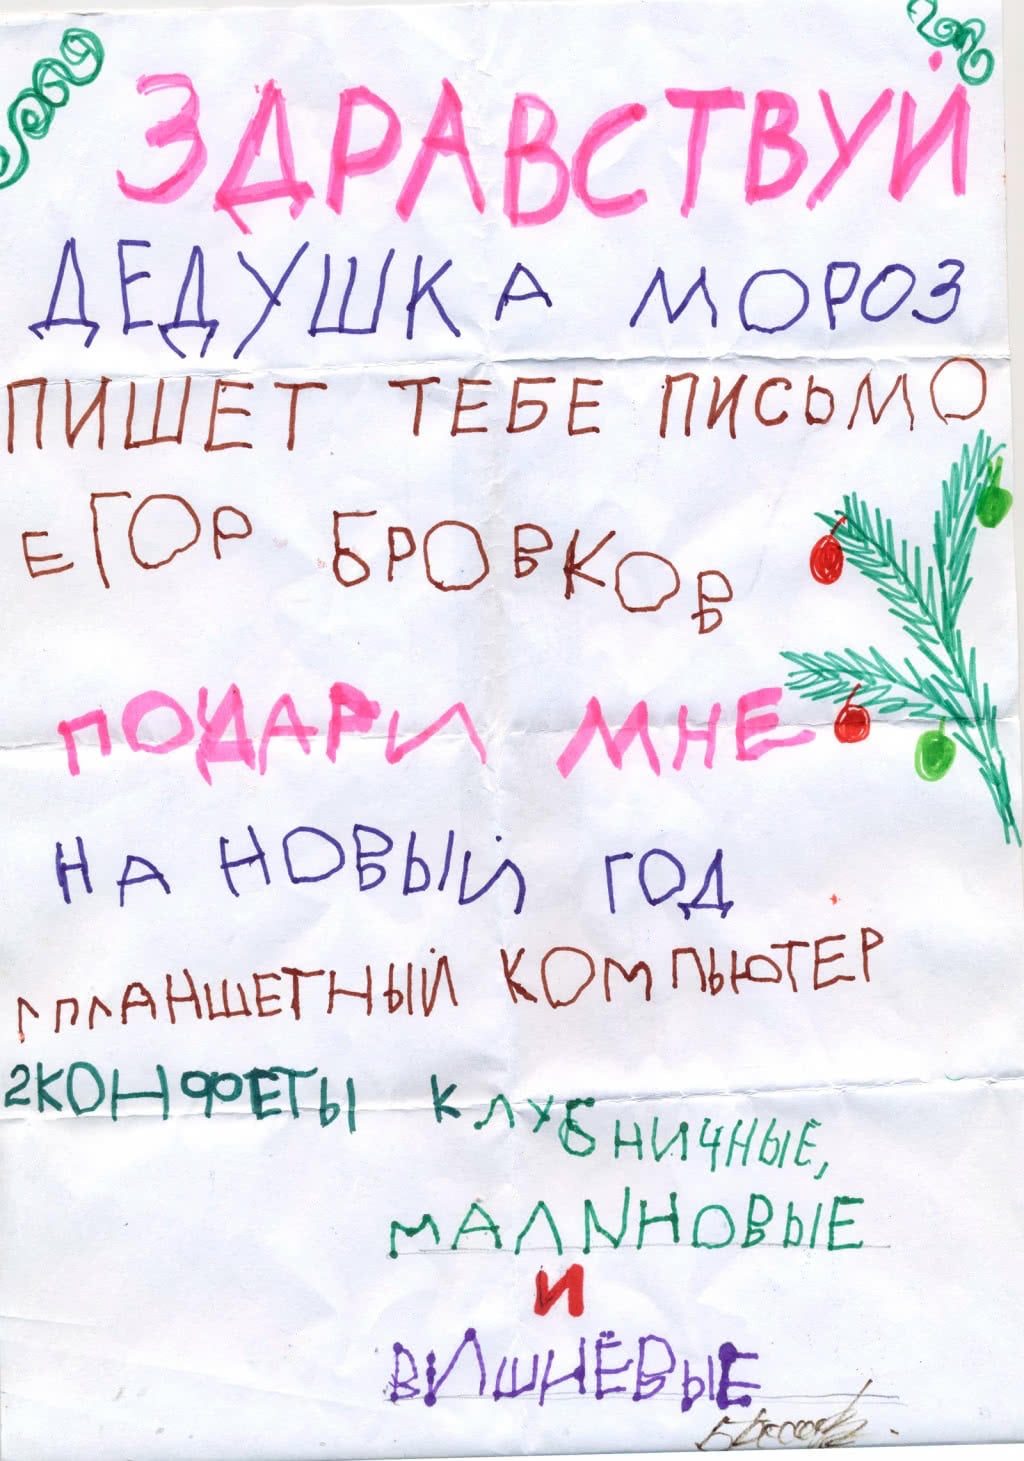 ЗДРАВСТВУЙ
ДЕДУШКА МОРОЗ
ПИШЕТ ТЕБЕ ПИСЬМО
ЕГОР БРОВКОВ
ПОДАРИ МНЕ
НА НОВЫЙ ГОД
1 ПЛАНШЕТНЫЙ КОМПЬЮТЕР
2 КОНФЕТЫ КЛУБНИЧНЫЕ,
МАЛИНОВЫЕ
И
ВИШНЁВЫЕ